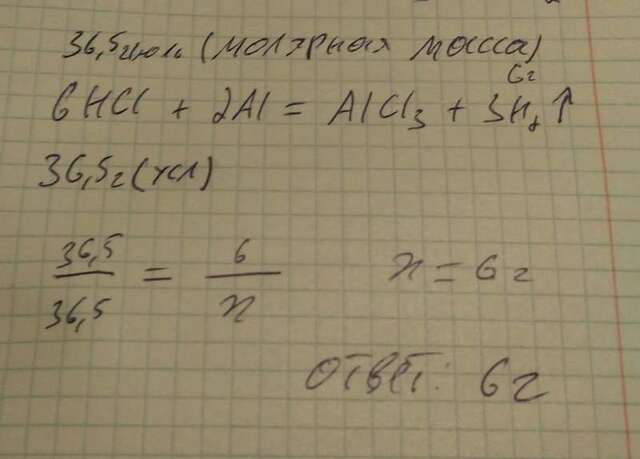 36,5г/моль (молярная масса)
6г
6HCl + 2Al = AlCl₃ + 3H₂↑
36,5г (усл)
36,5 / 36,5 = 6 / x x = 6г
ответ: 6г